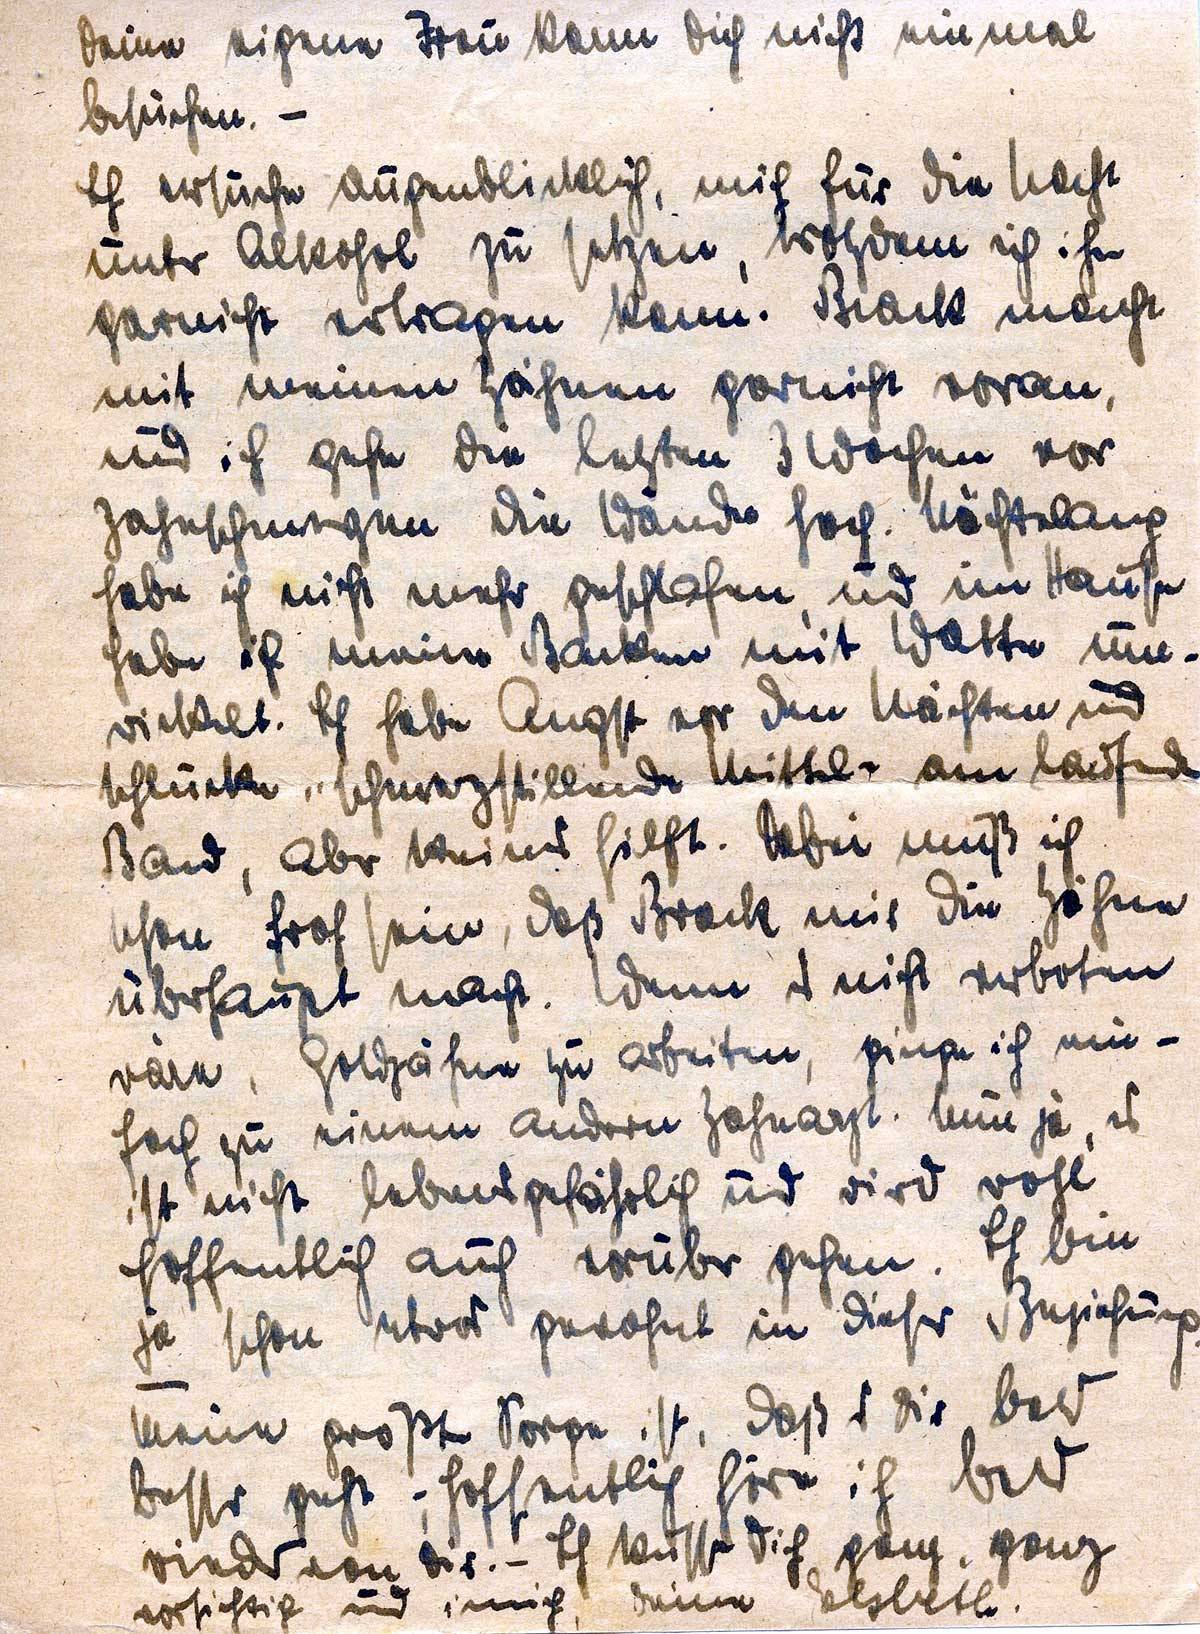 deine eigene Frau kann dich nicht einmal
besuchen. –
Ich versuche augenblicklich, mich für die Nacht
unter Alkohol zu setzen, trotzdem ich ihn
garnicht ertragen kann. Brack macht
mit meinen Zähnen garnicht voran,
und ich gehe die letzten 3 Wochen vor
Zahnschmerzen die Wände hoch. Nächtelang
habe ich nicht mehr geschlafen, und im Hause
habe ich meine Backen mit Watte um-
wickelt. Ich habe Angst vor den Nächten und
schlucke "schmerzstillende Mittel" am laufenden
Band, aber keines hilft. Dabei muß ich
schon froh sein, daß Brack mir die Zähne
überhaupt macht. Wenn es nicht verboten
wäre, Goldzähne zu arbeiten, ginge ich ein-
fach zu einem andern Zahnarzt. Nun ja, es
ist nicht lebensgefährlich und wird wohl
hoffentlich auch vorüber gehen. Ich bin
ja schon etwas gewohnt in dieser Beziehung.
Meine größte Sorge ist, daß es dir bald
besser geht –, hoffentlich höre ich bald
wieder von dir. – Ich küsse dich ganz, ganz
vorsichtig und innig, deine